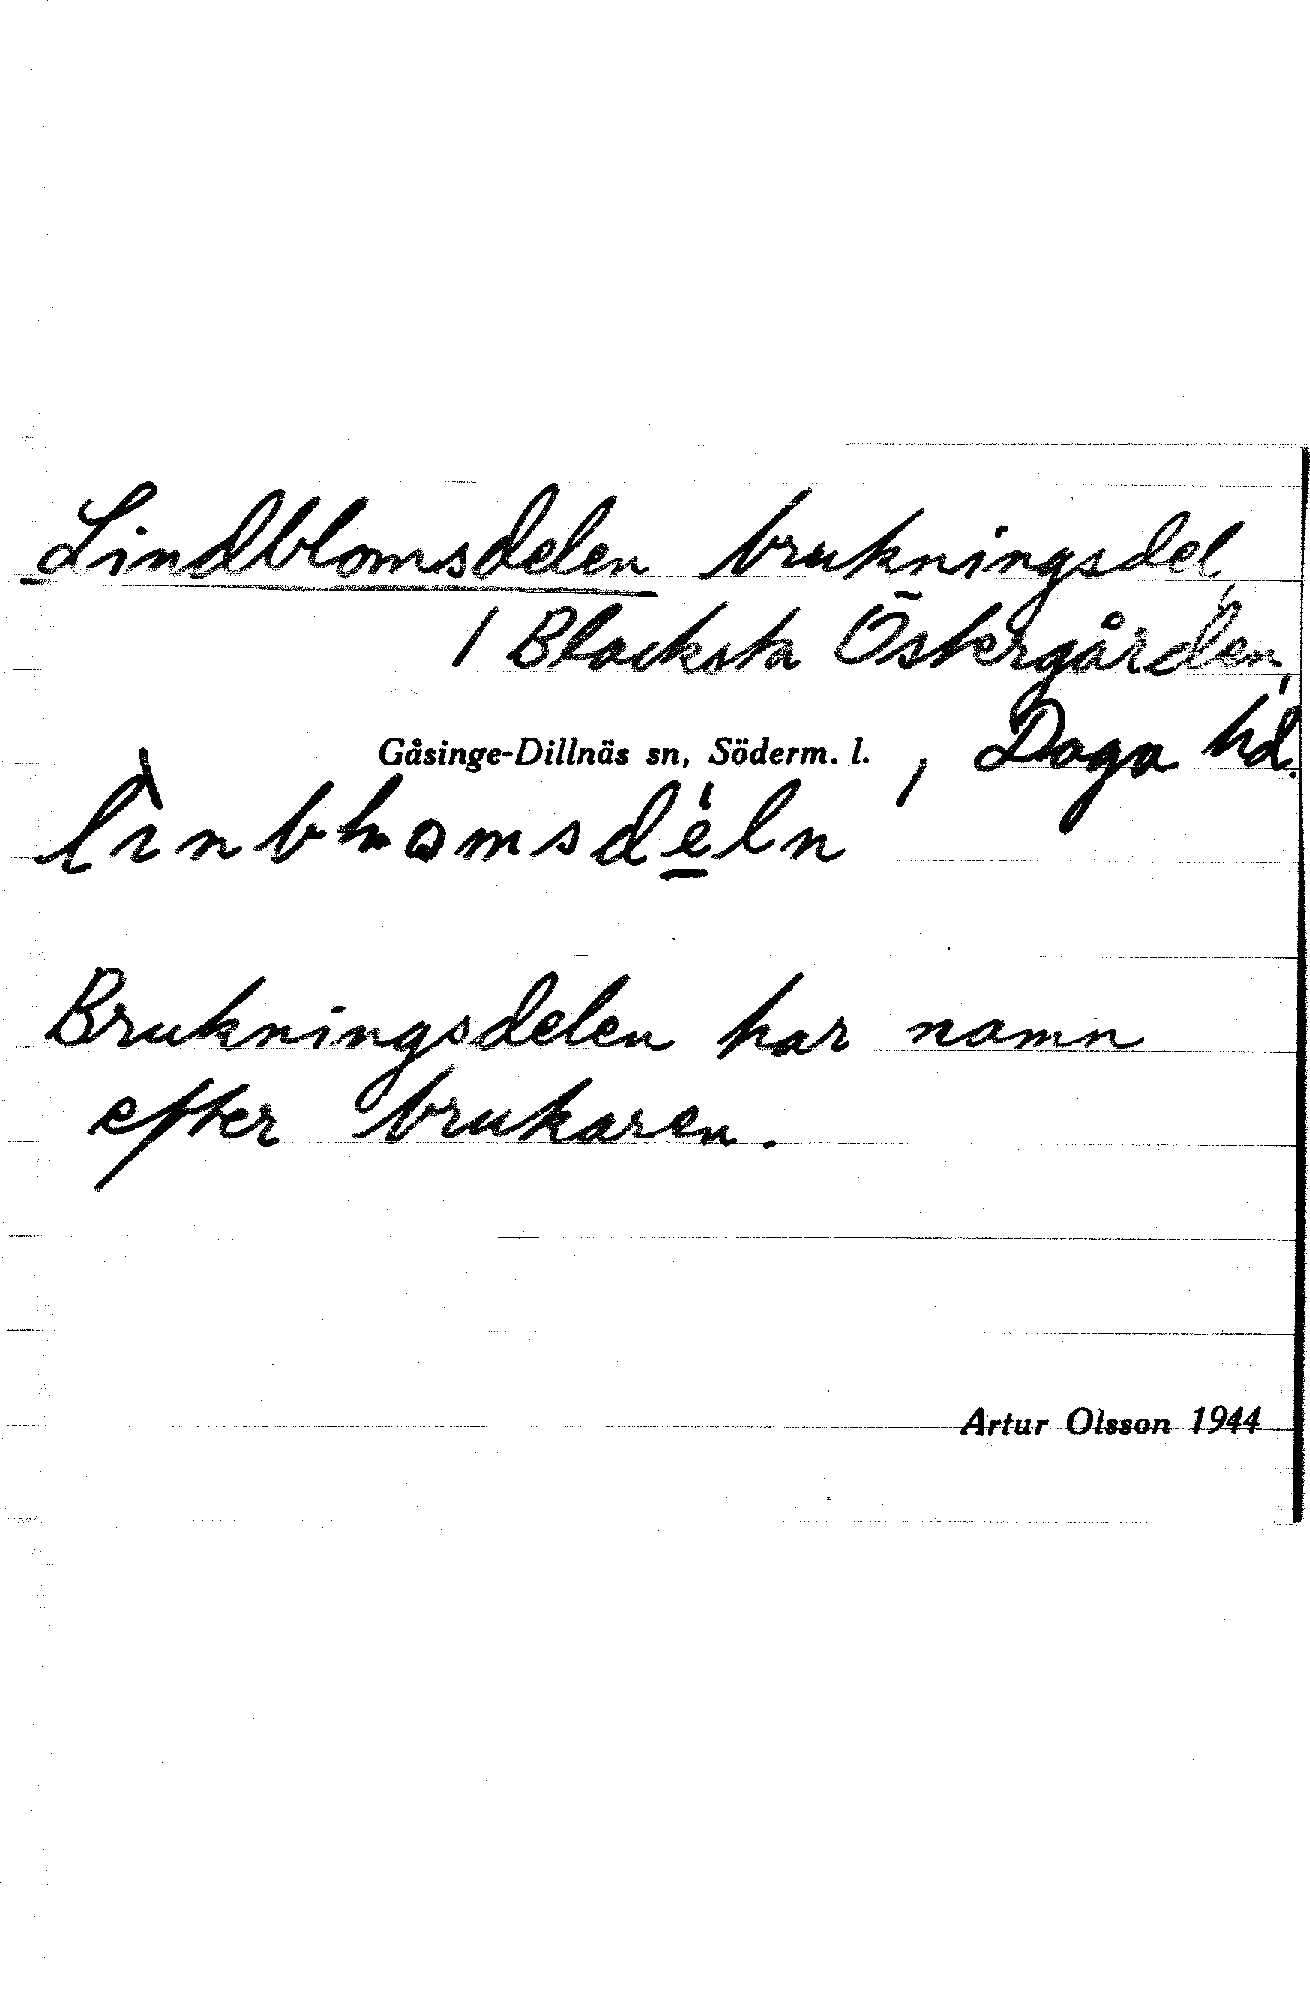 Lindblomsdelen brukningsdel,
i Blacksta Östergården,
Gåsinge-Dillnäs sn, Söderm. l. , Daga hd.
Brukningsdelen har namn
efter brukaren.
Artur Olsson 1944